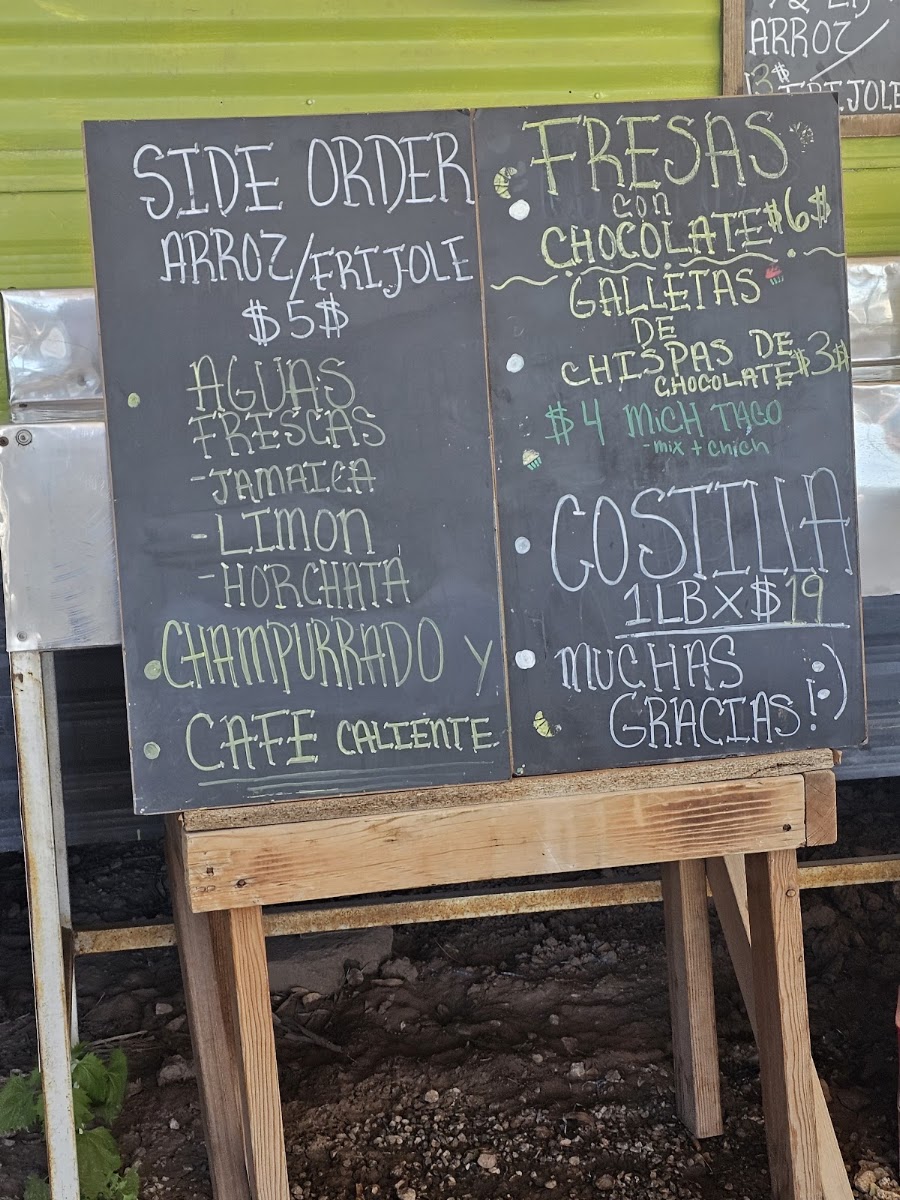 SIDE ORDER
ARROZ/FRIJOLE
$5$
AGUAS
FRESCAS
-JAMAICA
-LIMON
-HORCHATA
CHAMPURRADO y
CAFE CALIENTE
FRESAS
con
CHOCOLATE $6$
GALLETAS
DE
CHISPAS DE
CHOCOLATE $3$
$4 MICH TACO
-mix + chich
COSTILLA
1LB X $19
MUCHAS
GRACIAS! :)
ARROZ/
3$ FRIJOLE